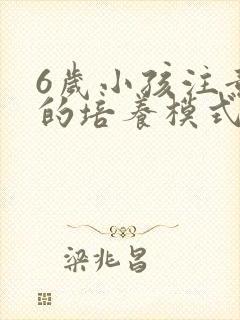 6歲小孩注意
的培養模式
梁兆昌